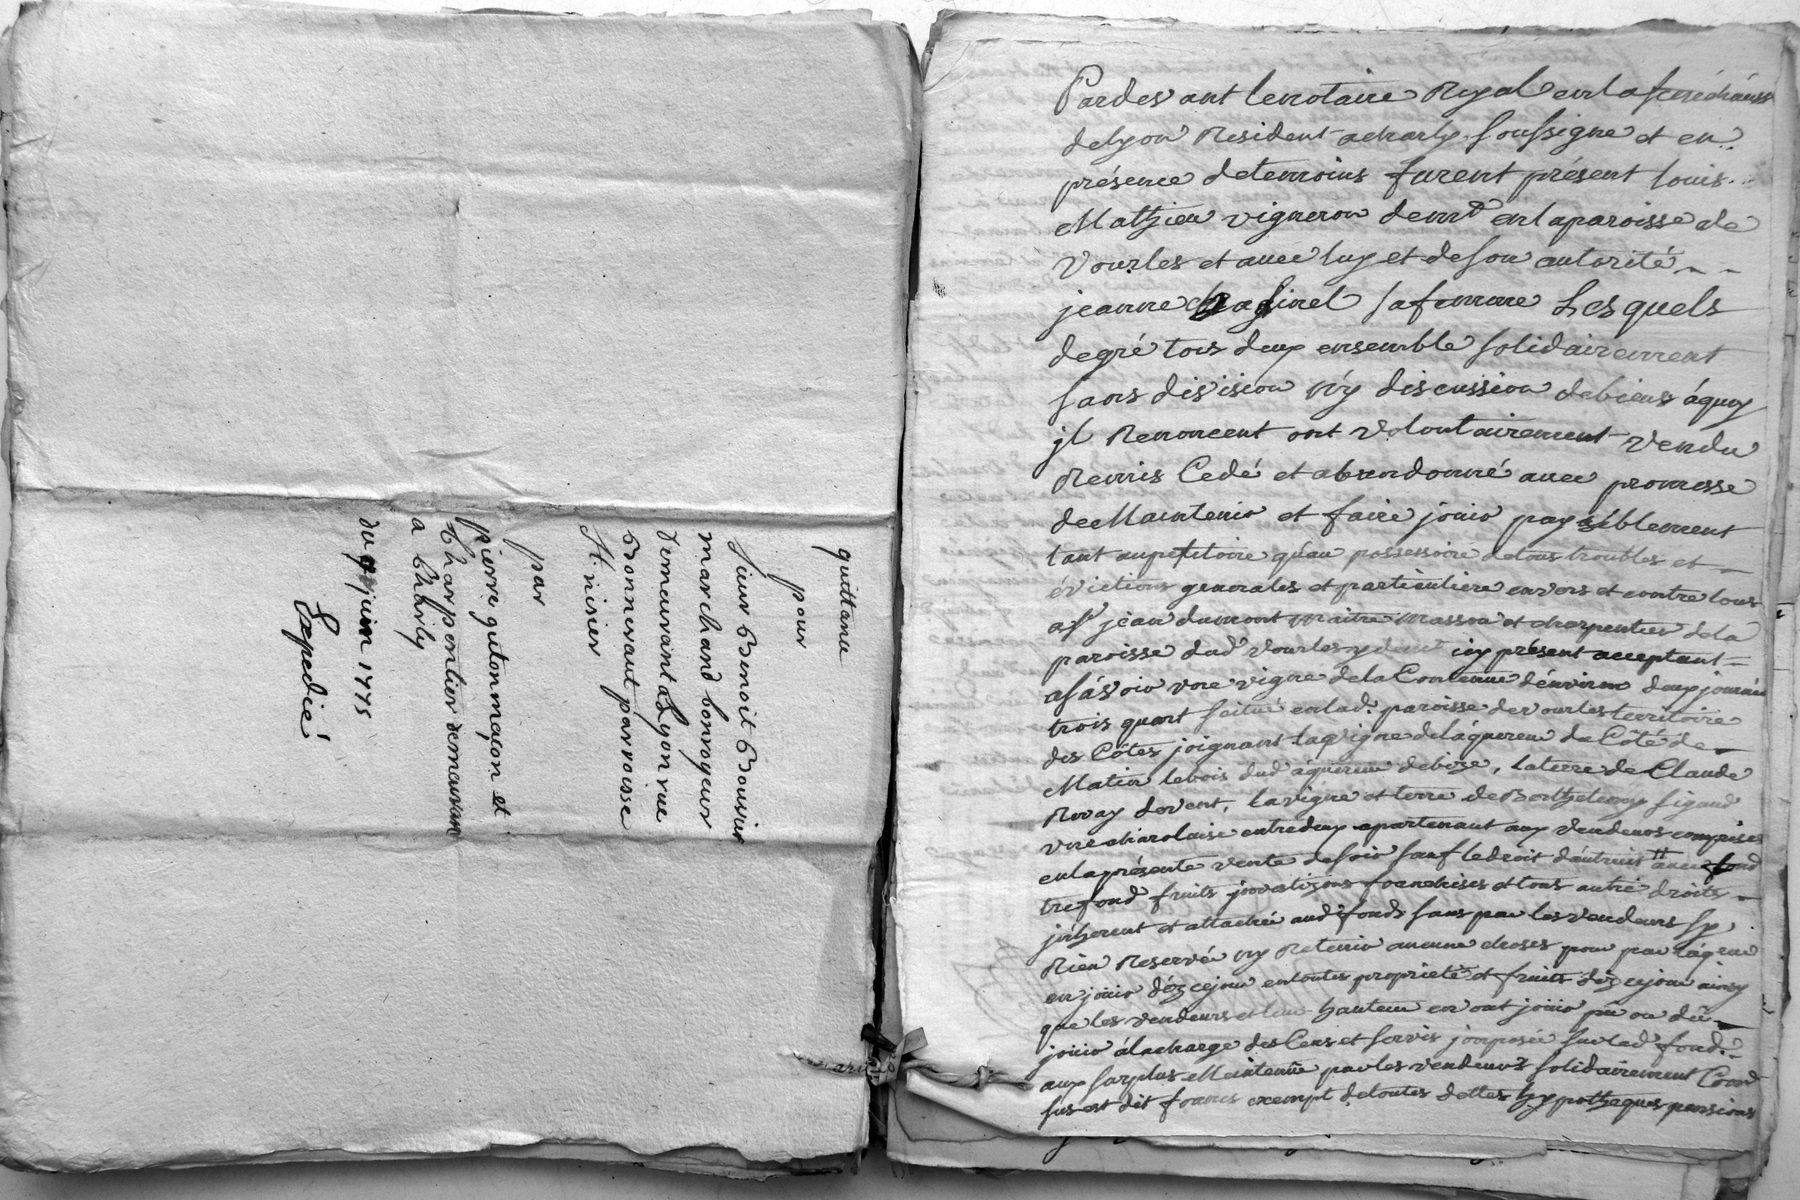 quittance
pour
Sieur Benoit Boussin
marchand bonvoyeur
demeurant a Lyon rue
Bonnevaut parroisse
St. nisier
par
pierre guton maçon et
Charpentier demeurant
a Charly
du 9 juin 1775
Expedié
Pardevant le notaire Royal en la senechaussé
de lyon Resident a charly soussigné et en
présence de temoins furent présent louis
Mathieu vigneron demt en la paroisse de
Vourles et avec luy et de son autorité
jeanne sa femme Lesquels
de gré tous deux ensemble solidairement
sans division n'y discussion de biens á quoy
jl Renoncent ont volontairement vendu
Remis Cedé et abandonné avec promesse
de Maintenir et faire jouir paysiblement
tant au petitoire qu'au possessoire de tous troubles et
évictions generales et particuliere envers et contre tous
a Sr jean dumont maitre masson et charpentier de la
paroisse dud. Vourles y demt icy présent acceptant
asávoir une vigne de la Contenue d'environ deux journées
trois quart scitué en lad. paroisse de vourles territoire
des Côtes joignant la vigne de l'áquereur de Côté de
Matin le bois dud. áquereur de bize, la terre de Claude
Revay de vent, la vigne et terre de Berthelemy sigaud
une charolaise entredeux apartenant aux vendeurs comprise
en la présente vente de soir sauf le droit d'autruit avec fond
trefond fruits jssues franchises et tous autre droits
jnherent et attachée aud. fonds sans par les vendeurs sy
Rien Reservér ny Retenir aucune choses pour par l'áquereur
en jouir d'éz ce jour en toutes proprieté et fruits déz ce jour ainsy
que les vendeurs et leur hauteur en ont jouir pu ou dû
jouir á la charge des Cens et servis jmposée sur led. fond
au surplus Maintenue par les vendeurs solidairement Comme
sus est dit francs exempt de toutes dettes hypotheques pensions